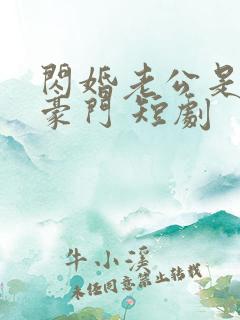 閃婚老公是
豪門 短劇
牛小溪
未經同意禁止轉載